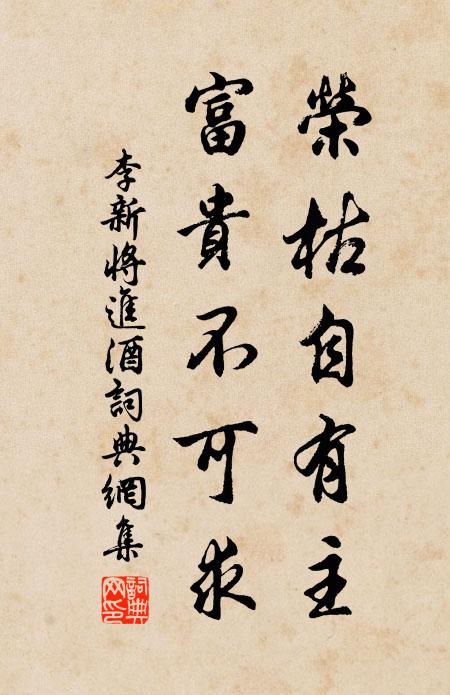 榮枯自有主
富貴不可求
李新將進酒詞典網集
詞典網印